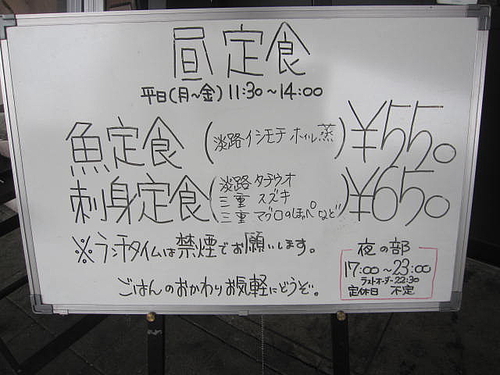 昼定食
平日(月~金)11:30~14:00
魚定食(淡路イシモチ ホイル蒸)¥550
刺身定食(淡路 タチウオ 三重 スズキ 三重 マグロのほっぺなど)¥650
※ランチタイムは禁煙でお願いします。
ごはんのおかわりお気軽にどうぞ。
夜の部
17:00~23:00
ラストオーダー22:30
定休日 不定